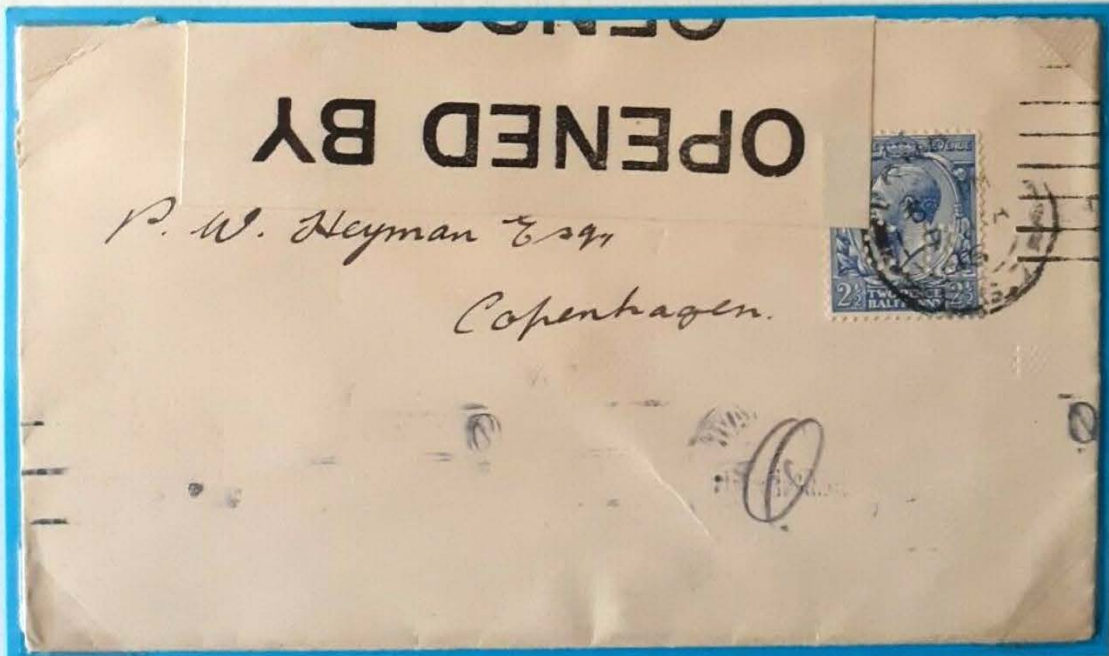 OPENED BY
P. W. Heyman Esqr
Copenhagen.
2½ TWO PENCE 2½
HALFPENNY